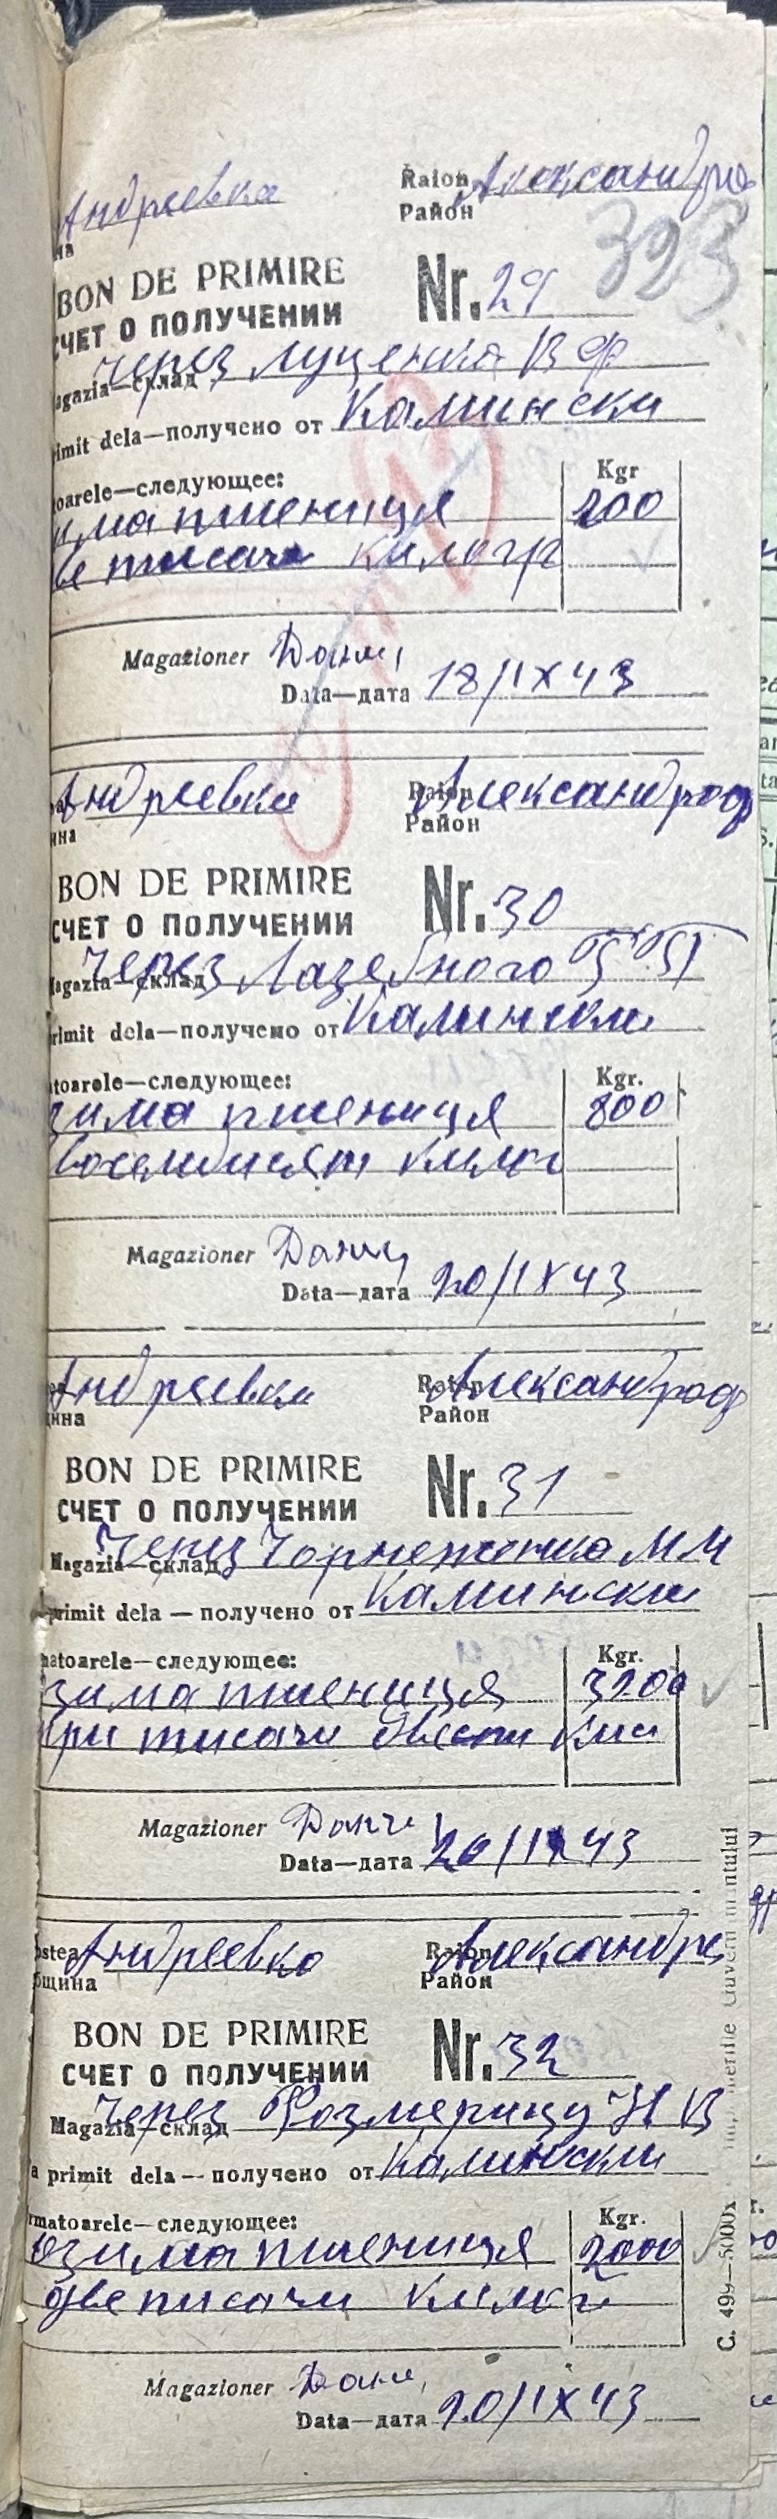 Андреевка Raion Александро
на Район
323
BON DE PRIMIRE Nr. 29
СЧЕТ О ПОЛУЧЕНИИ
agazia—склад через Луценка В Ф
rimit dela—получено от Калински
toarele—следующее: Kgr
има пшениця 200
ве тисачи килогр
Magazioner
Data—дата 18/IX 43
Андреевка Raion Александроф
ина Район
BON DE PRIMIRE Nr. 30
СЧЕТ О ПОЛУЧЕНИИ
agazia—склад через Лазебного
rimit dela—получено от Калински
toarele—следующее: Kgr.
зима пшениця 800
восемсият килог
Magazioner
Data—дата 20/IX 43
Андреевка Raion Александроф
щина Район
BON DE PRIMIRE Nr. 31
СЧЕТ О ПОЛУЧЕНИИ
Magazia—склад через М М
primit dela — получено от Калински
matoarele—следующее: Kgr.
зима пшениця 3200
три тисачи двести кил
Magazioner
Data—дата 20/IX 43
ostea Андреевка Raion Александро
бщина Район
BON DE PRIMIRE Nr. 32
СЧЕТ О ПОЛУЧЕНИИ
Magazia—склад через Розмерицу Н В
a primit dela — получено от Калински
rmatoarele—следующее: Kgr.
озима пшениця 2000
две тисачи килог
Magazioner
Data—дата 20/IX 43
C. 499—5000x